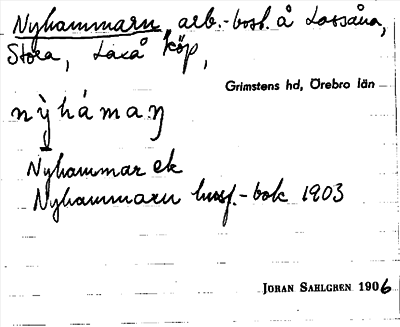 Nyhammarn, arb.-bost. å Lassåna,
Stora, Laxå köp,
Grimstens hd, Örebro län
nỳháman
Nyhammar ek
Nyhammarn husf.-bok 1903
JÖRAN SAHLGREN 1906